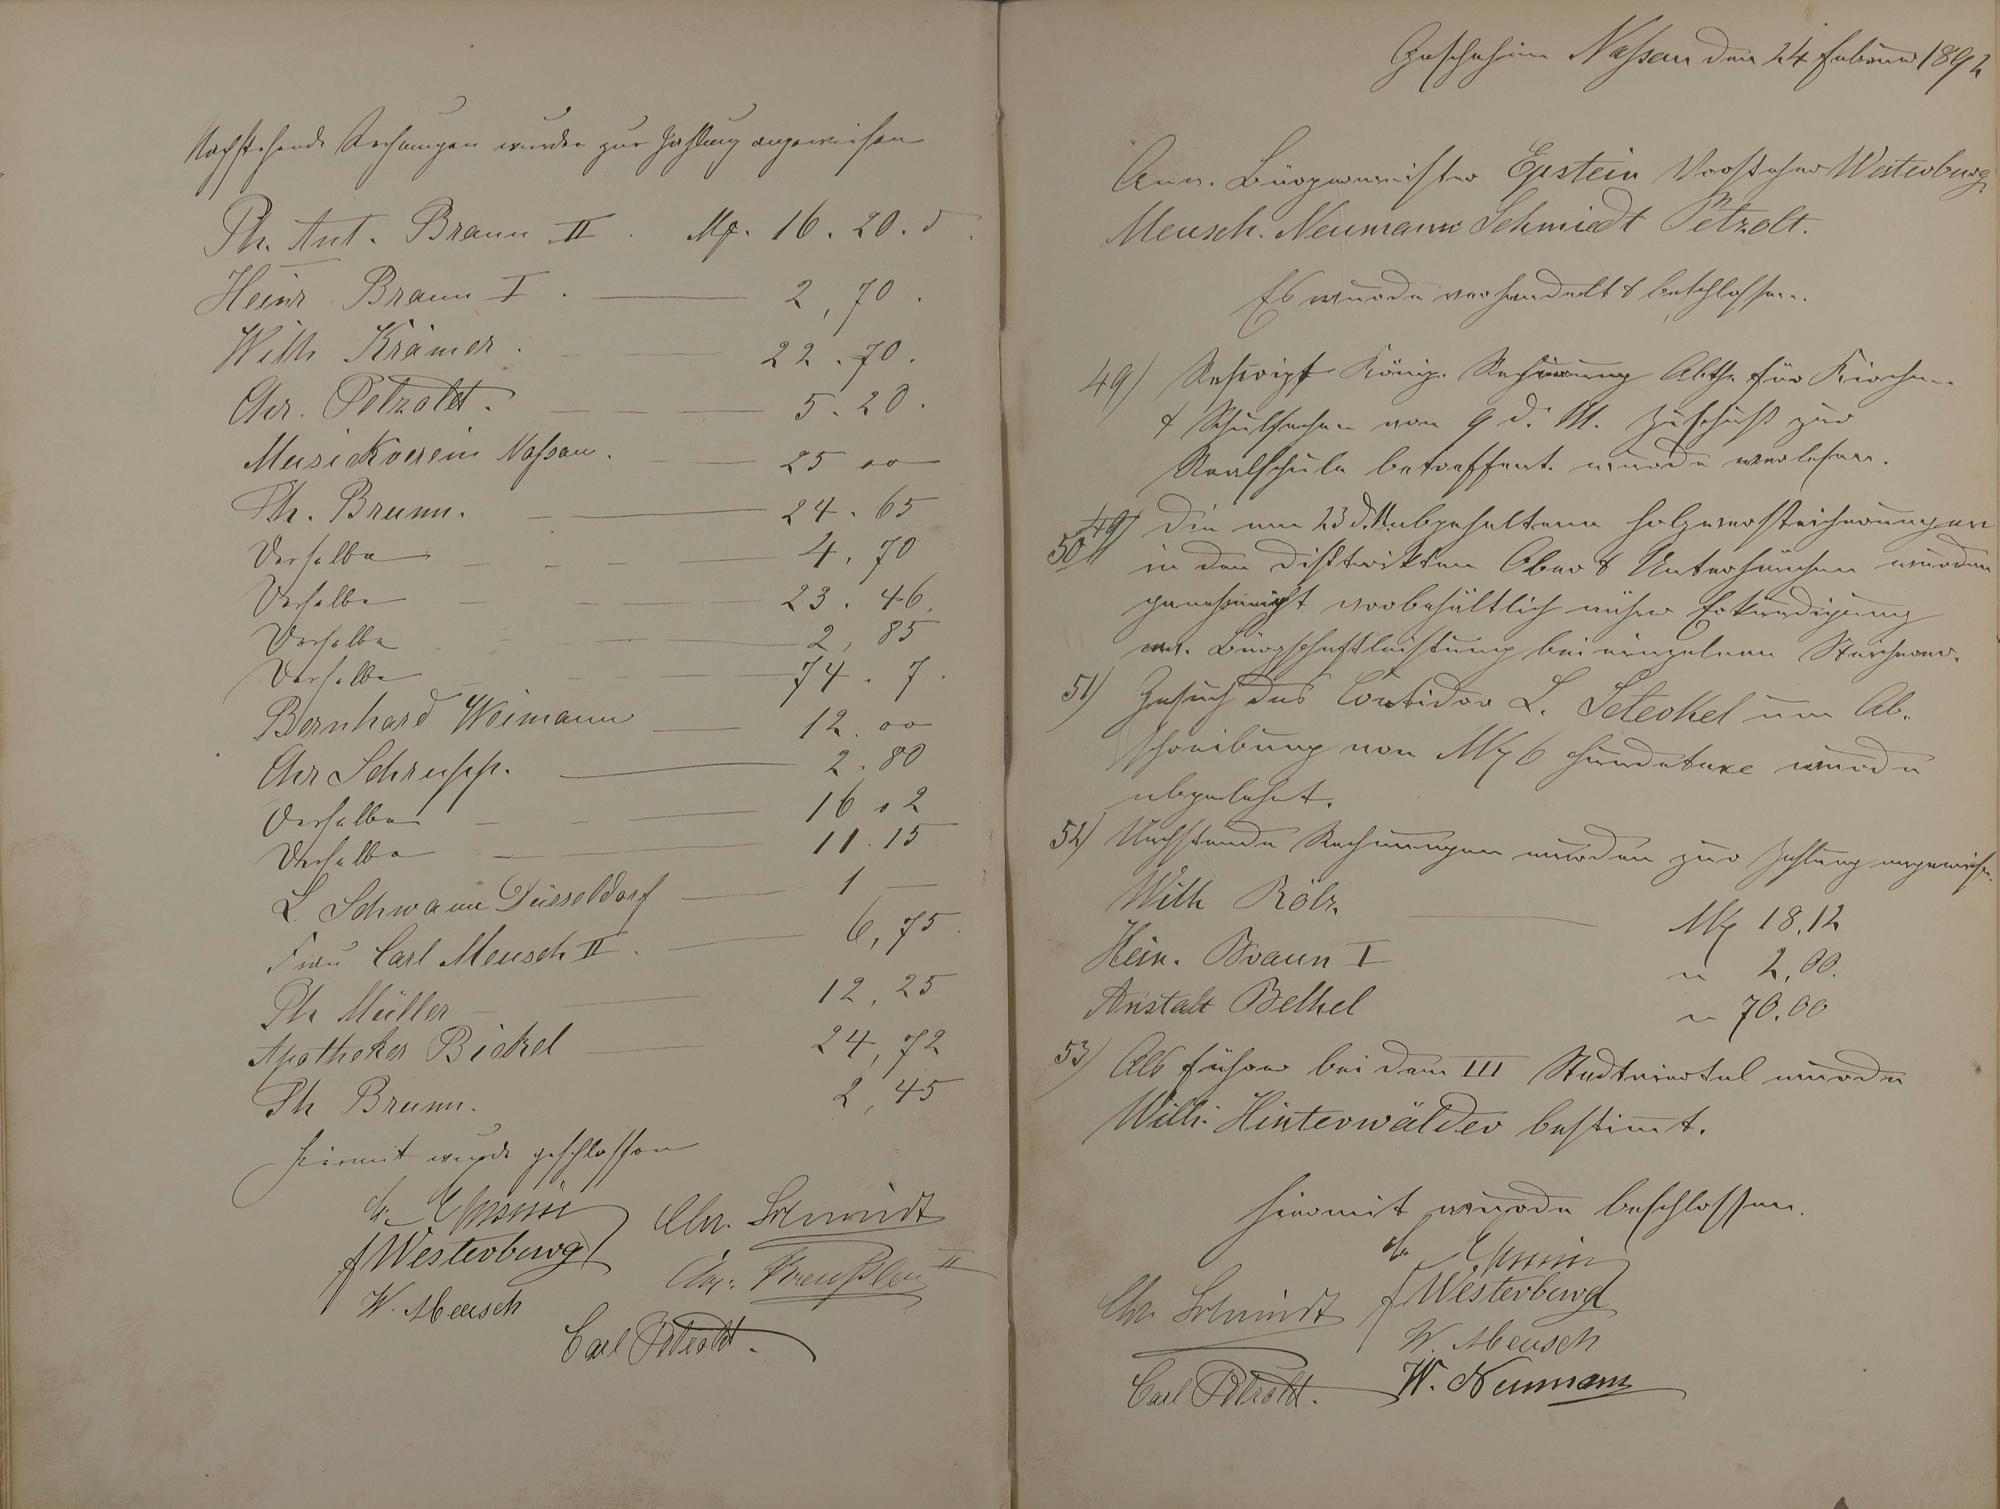 Nachstehende Rechnungen wurden zur Zahlung angewiesen
Ph. Ant. Braun II . Mk. 16.20. d
Heinr Braun I . 2,70.
Wilh Krämer . 22.70.
Chr. Petzoldt. 5.20.
Musickverein Nassau. 25 00
Ph. Brunn. 24.65
Derselbe 4,70
Derselbe 23.46.
Derselbe 2,85
Derselbe 74.7.
Bernhard Weimann 12.00
Chr Schrupp. 2.80
Derselbe 16,02
Derselbe 11.15
L. Schwann Düsseldorf 1 —
Frau Carl Meusch II. 6,75
Ph Müller 12,25
Apotheker Bickel 24,72
Ph Brunn. 2,45
Hiermit wurde geschlossen
Epstein Chr. Schmidt
Westerburg
W. Meusch
Carl Petzoldt.
Geschehen Nassau den 24 Februar 1892
Anw. Bürgermeister Epstein Vorsteher Westerburg
Meusch. Neumann Schmidt Petzolt.
Es wurde verhandelt & beschlossen.
49) Rescript König. Regierung Abth. für Kirchen-
& Schulsachen vom 9 d. M. Zuschuß zur
Realschule betreffent. wurde verlesen.
50 49) Die am 23 d.M. abgehaltenen Holzversteicherungen
in den Distrikten Ober & Unterhäuchen wurden
genehmigt vorbehältlich näher Erkundigung
Bürgschaftleistung bei einzelnen Steicherer.
51) Gesuch des Conditor L. Steckel um Ab-
schreibung von Mk 6 Hundetaxe wurde
abgelehnt.
52) Nachstende Rechnungen wurden zur Zahlung angewiesen.
Wilh Rölz. Mk 18,12
Hein. Braun I " 2,00.
Anstalt Bethel " 70.00
53) Als Führer bei dem III Stadtviertel wurde
Wilh. Hinterwälder bestimt.
Hiermit wurde beschlossen.
Epstein
Chr. Schmidt Westerburg
W. Meusch
Carl Petzoldt. W. Neumann